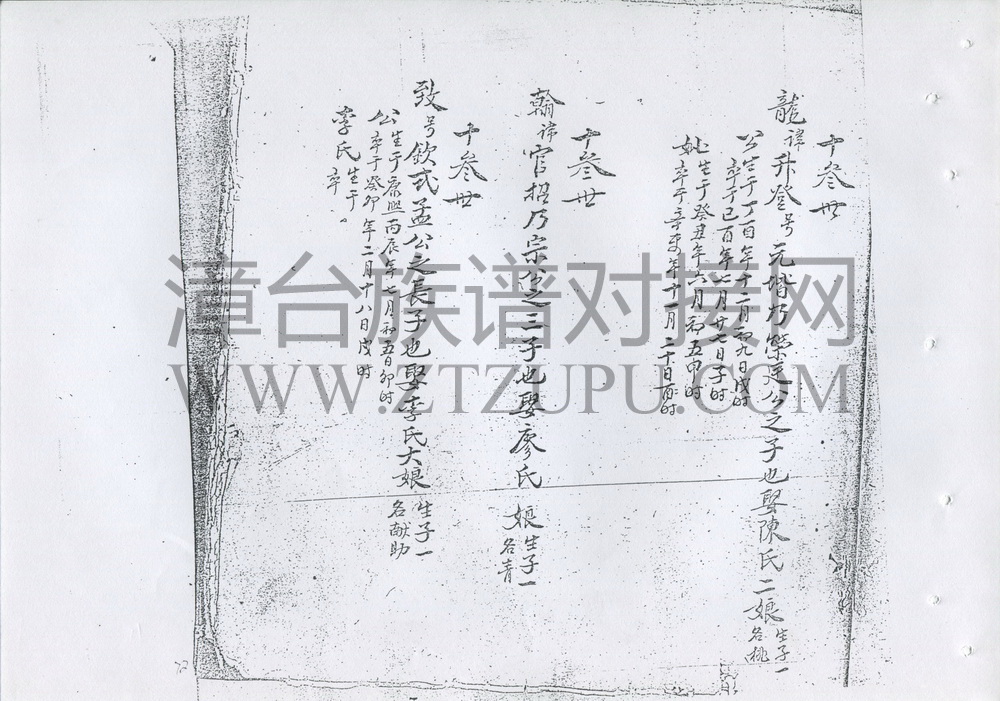 十叁世
龍 諱升登号元增乃榮建公之子也娶陳氏二娘 生子一
名桃
公 生于丁酉年十二月初九日戌时
卒于己酉年七月廿七日子时
妣 生于癸丑年六月初五申时
卒于辛年十一月二十日酉时
十叁世
翰 諱官招乃宗公之三子也娶廖氏 娘 生子一
名青
十叁世
致 号欽式孟公之長子也娶李氏大娘 生子一
名献助
公 生于康熙丙辰年七月初五日卯时
卒于癸卯年二月十八日戌时
李氏 生于
卒
漳台族谱对接网
WWW.ZTZUPU.COM